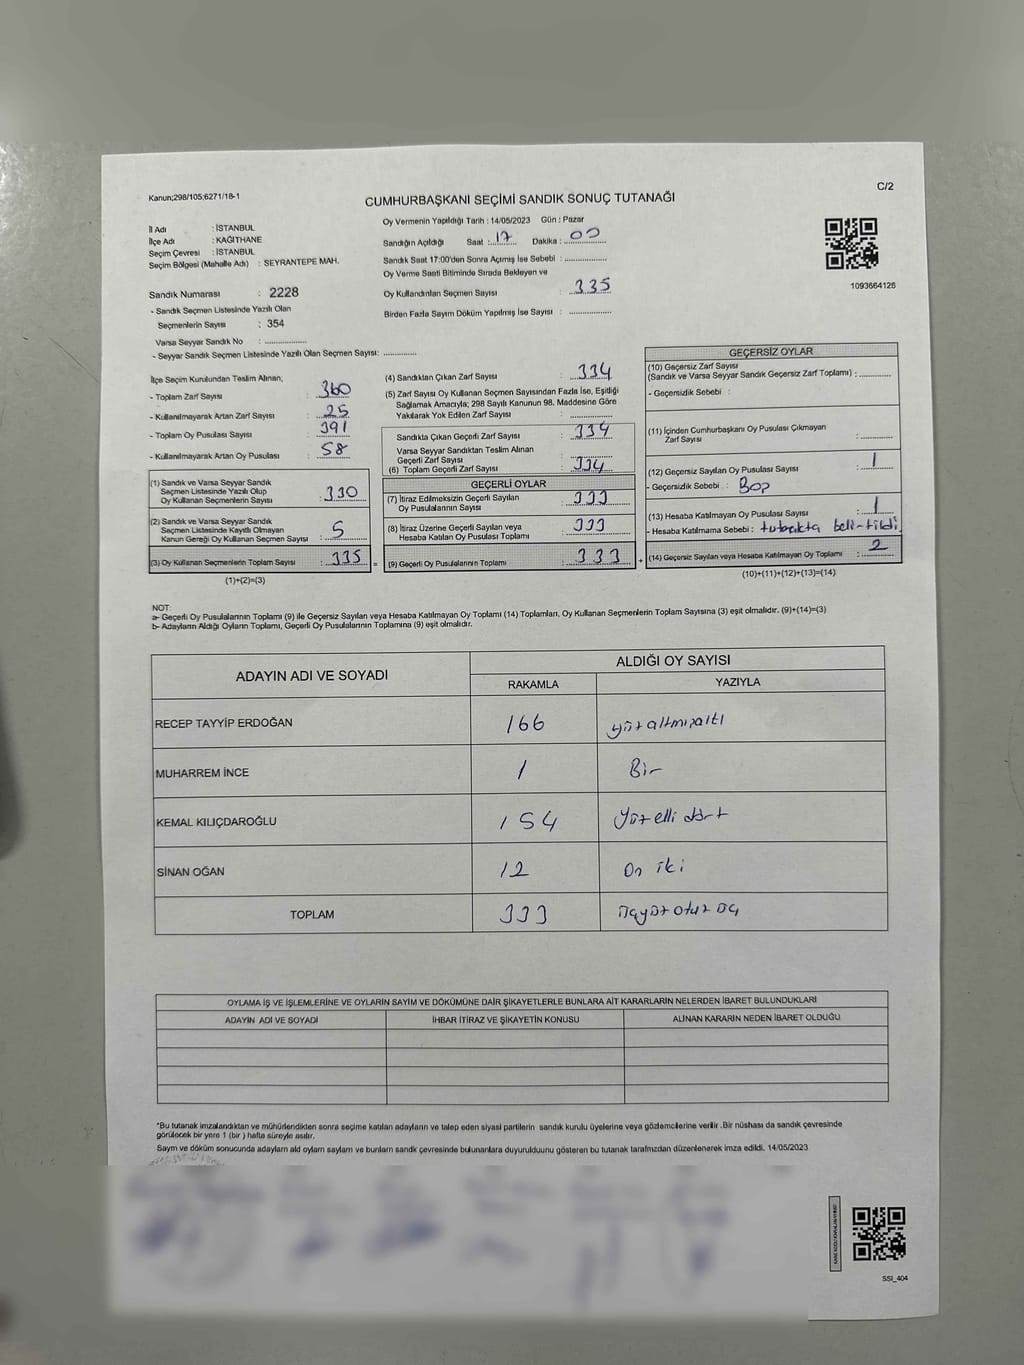 C/2
Kanun;298/105;6271/18-1
CUMHURBAŞKANI SEÇİMİ SANDIK SONUÇ TUTANAĞI
İl Adı : İSTANBUL
İlçe Adı : KAĞITHANE
Seçim Çevresi : İSTANBUL
Seçim Bölgesi (Mahalle Adı) : SEYRANTEPE MAH.
Sandık Numarası : 2228
- Sandık Seçmen Listesinde Yazılı Olan
Seçmenlerin Sayısı : 354
Varsa Seyyar Sandık No : ..............
- Seyyar Sandık Seçmen Listesinde Yazılı Olan Seçmen Sayısı: ...........
Oy Vermenin Yapıldığı Tarih : 14/05/2023 Gün : Pazar
Sandığın Açıldığı Saat : 17 Dakika : 00
Sandık Saat 17:00'den Sonra Açımış İse Sebebi : ..................
Oy Verme Saati Bitiminde Sırada Bekleyen ve
Oy Kullandırılan Seçmen Sayısı : 335
Birden Fazla Sayım Döküm Yapılmış İse Sayısı : ..................
1093664126
İlçe Seçim Kurulundan Teslim Alınan;
- Toplam Zarf Sayısı : 360
- Kullanılmayarak Artan Zarf Sayısı : 25
- Toplam Oy Pusulası Sayısı : 391
- Kullanılmayarak Artan Oy Pusulası : 58
(1) Sandık ve Varsa Seyyar Sandık
Seçmen Listesinde Yazılı Olup
Oy Kullanan Seçmenlerin Sayısı : 330
(2) Sandık ve Varsa Seyyar Sandık
Seçmen Listesinde Kayıtlı Olmayan
Kanun Gereği Oy Kullanan Seçmen Sayısı : 5
(3) Oy Kullanan Seçmenlerin Toplam Sayısı : 335
(1)+(2)=(3)
(4) Sandıktan Çıkan Zarf Sayısı : 334
(5) Zarf Sayısı Oy Kullanan Seçmen Sayısından Fazla İse, Eşitliği
Sağlamak Amacıyla; 298 Sayılı Kanunun 98. Maddesine Göre
Yakılarak Yok Edilen Zarf Sayısı : ..............
Sandıkta Çıkan Geçerli Zarf Sayısı : 334
Varsa Seyyar Sandıktan Teslim Alınan
Geçerli Zarf Sayısı : ..............
(6) Toplam Geçerli Zarf Sayısı : 334
GEÇERLİ OYLAR
(7) İtiraz Edilmeksizin Geçerli Sayılan
Oy Pusulalarının Sayısı : 333
(8) İtiraz Üzerine Geçerli Sayılan veya
Hesaba Katılan Oy Pusulası Toplamı : 333
= (9) Geçerli Oy Pusulalarının Toplamı : 333 +
GEÇERSİZ OYLAR
(10) Geçersiz Zarf Sayısı
(Sandık ve Varsa Seyyar Sandık Geçersiz Zarf Toplamı) : ..........
- Geçersizlik Sebebi :
(11) İçinden Cumhurbaşkanı Oy Pusulası Çıkmayan
Zarf Sayısı : ..........
(12) Geçersiz Sayılan Oy Pusulası Sayısı : 1
- Geçersizlik Sebebi : Boş
(13) Hesaba Katılmayan Oy Pusulası Sayısı : 1
- Hesaba Katılmama Sebebi : tutanakta belirtildi
(14) Geçersiz Sayılan veya Hesaba Katılmayan Oy Toplamı : 2
(10)+(11)+(12)+(13)=(14)
NOT:
a- Geçerli Oy Pusulalarının Toplamı (9) ile Geçersiz Sayılan veya Hesaba Katılmayan Oy Toplamı (14) Toplamları, Oy Kullanan Seçmenlerin Toplam Sayısına (3) eşit olmalıdır. (9)+(14)=(3)
b- Adayların Aldığı Oyların Toplamı, Geçerli Oy Pusulalarının Toplamına (9) eşit olmalıdır.
ADAYIN ADI VE SOYADI ALDIĞI OY SAYISI
RAKAMLA YAZIYLA
RECEP TAYYİP ERDOĞAN 166 yüzaltmışaltı
MUHARREM İNCE 1 Bir
KEMAL KILIÇDAROĞLU 154 Yüzelli dört
SİNAN OĞAN 12 On iki
TOPLAM 333 üçyüz otuz üç
OYLAMA İŞ VE İŞLEMLERİNE VE OYLARIN SAYIM VE DÖKÜMÜNE DAİR ŞİKAYETLERLE BUNLARA AİT KARARLARIN NELERDEN İBARET BULUNDUKLARI
ADAYIN ADI VE SOYADI İHBAR İTİRAZ VE ŞİKAYETİN KONUSU ALINAN KARARIN NEDEN İBARET OLDUĞU
*Bu tutanak imzalandıktan ve mühürlendikten sonra seçime katılan adayların ve talep eden siyasi partilerin sandık kurulu üyelerine veya gözlemcilerine verilir .Bir nüshası da sandık çevresinde
görülecek bir yere 1 (bir ) hafta süreyle asılır.
Sayım ve döküm sonucunda adayların ald oyların sayların ve bunların sandık çevresinde bulunanlara duyurulduunu gösteren bu tutanak tarafımızdan düzenlenerek imza edildi. 14/05/2023
SSI_404